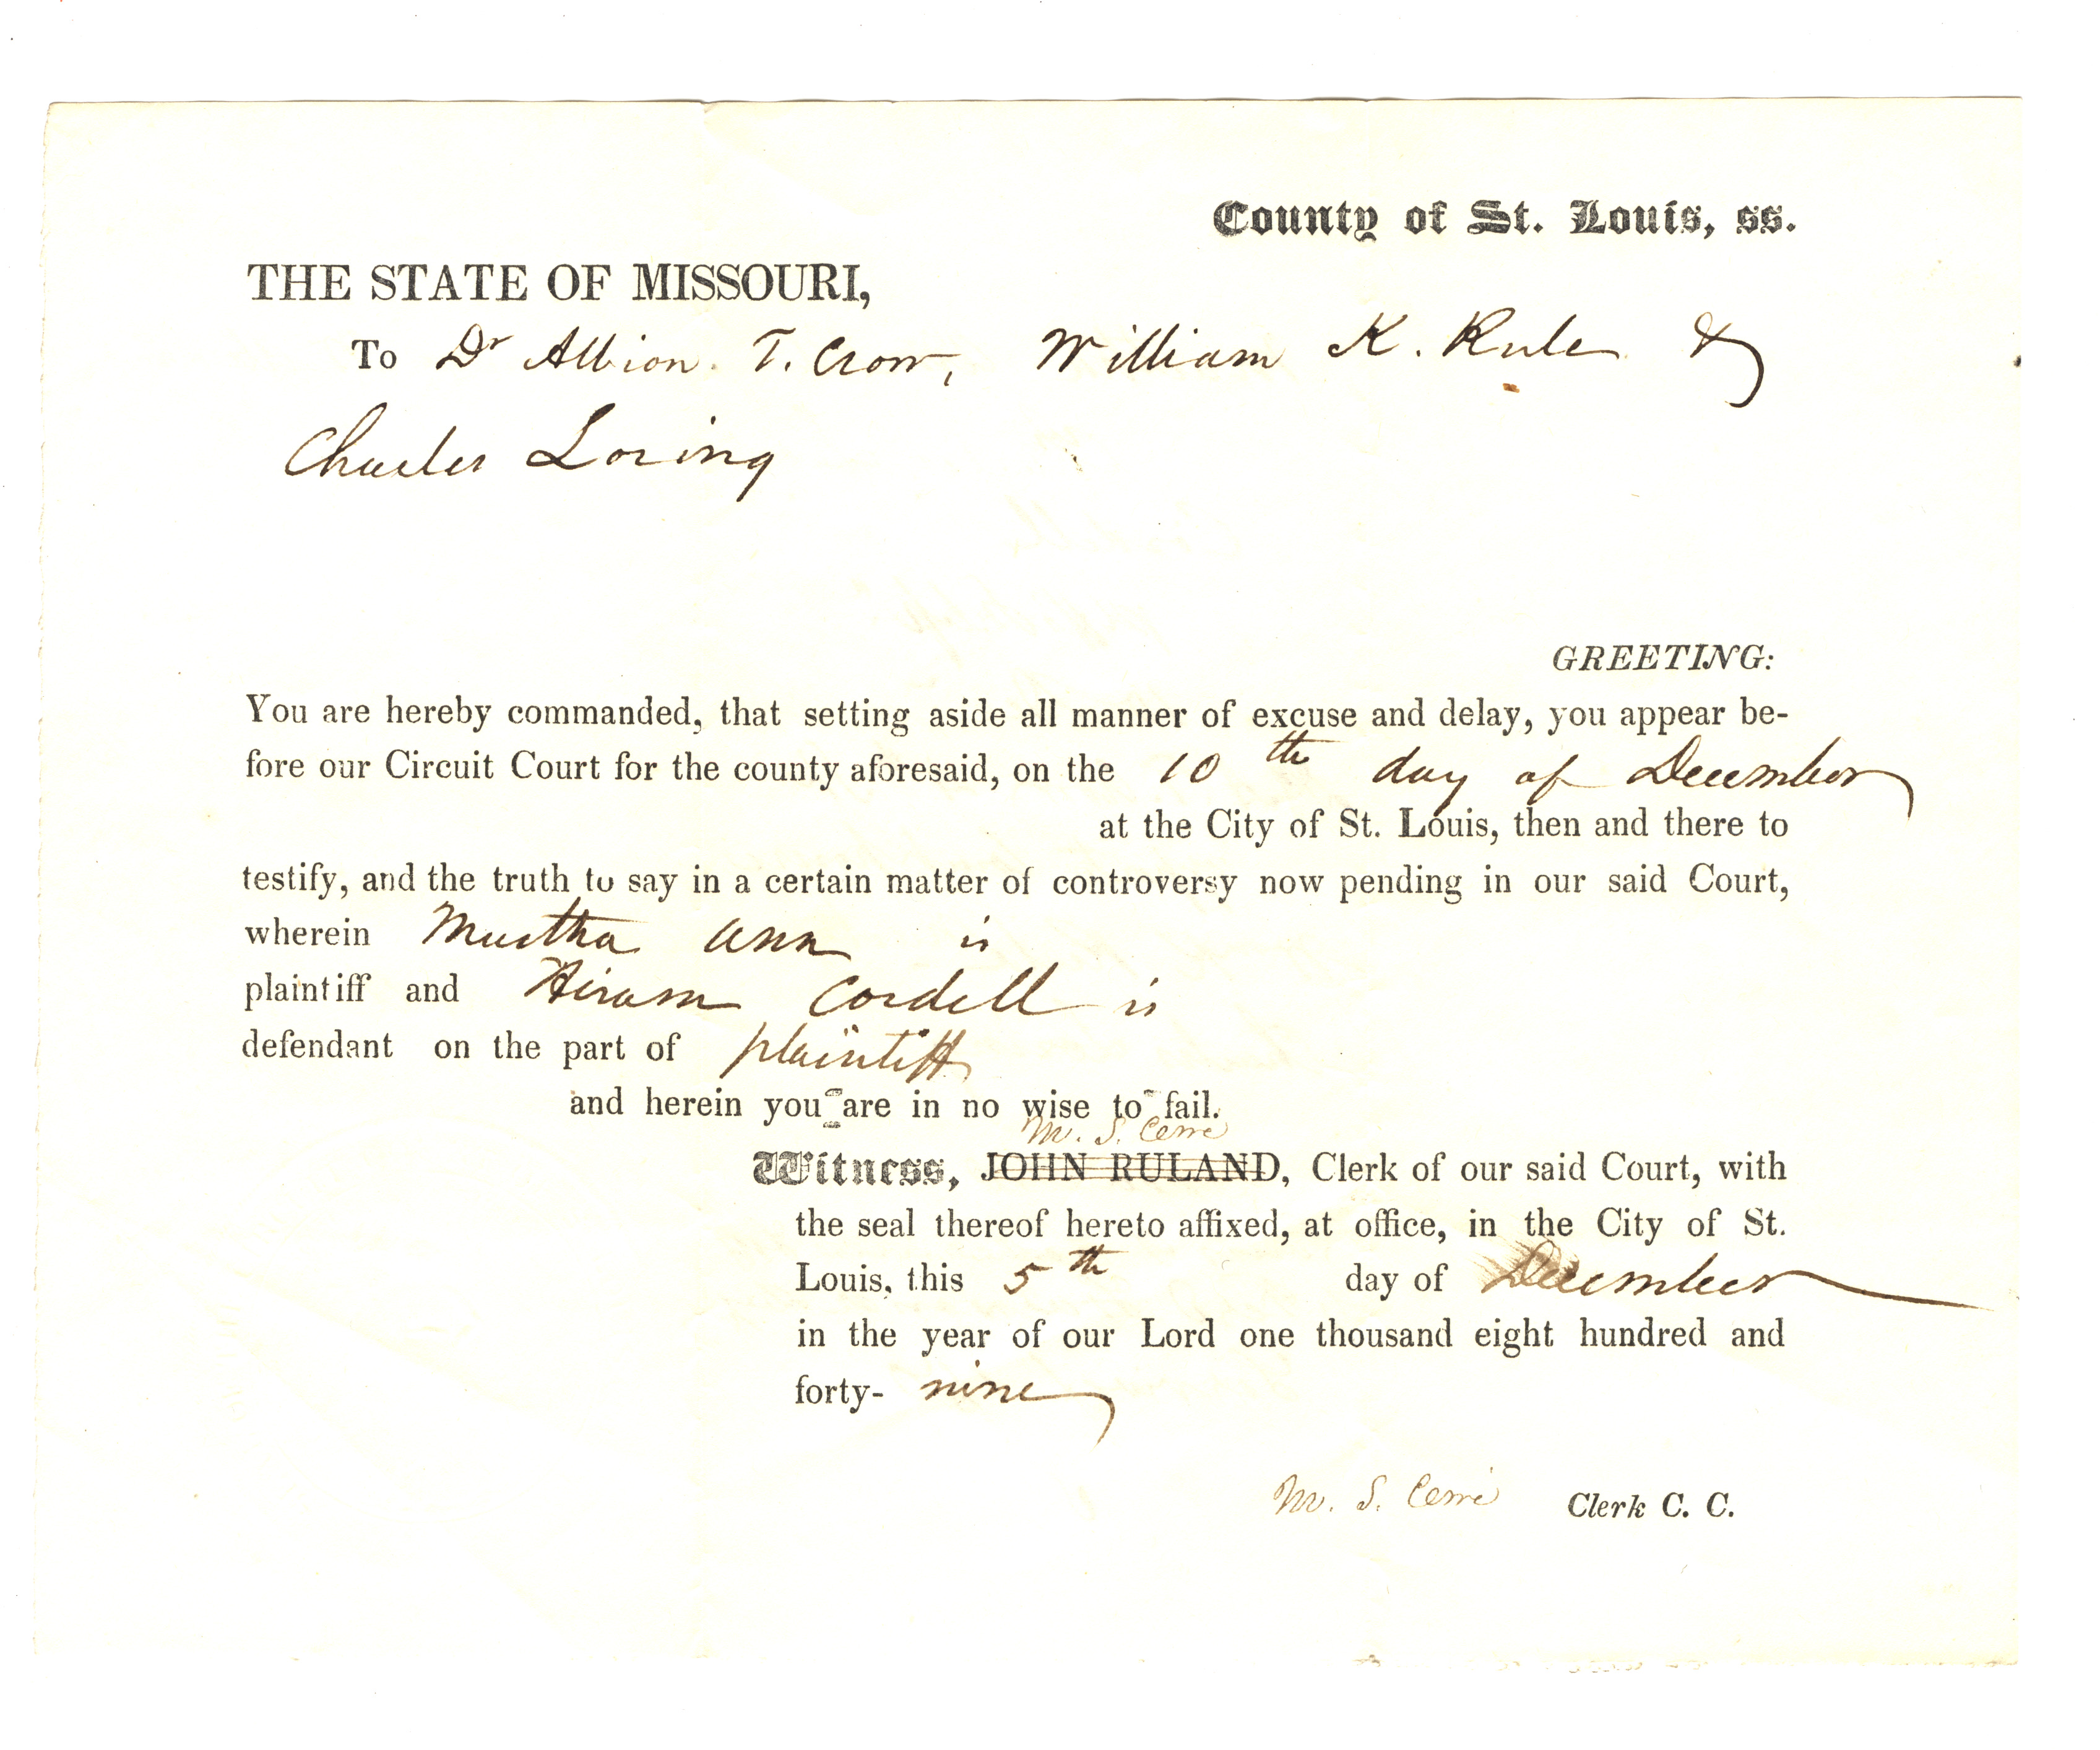 County of St. Louis, ss.
THE STATE OF MISSOURI,
To Dr Albion. T. Crow, William K. Rule &
Charles Loring
GREETING:
You are hereby commanded, that setting aside all manner of excuse and delay, you appear be-
fore our Circuit Court for the county aforesaid, on the 10th day of December
at the City of St. Louis, then and there to
testify, and the truth to say in a certain matter of controversy now pending in our said Court,
wherein Martha Ann is
plaintiff and Hiram Cordell is
defendant on the part of plaintiff
and herein you are in no wise to fail.
M. S. Cerré
Witness, JOHN RULAND, Clerk of our said Court, with
the seal thereof hereto affixed, at office, in the City of St.
Louis, this 5th day of December
in the year of our Lord one thousand eight hundred and
forty- nine
M. S. Cerré Clerk C. C.